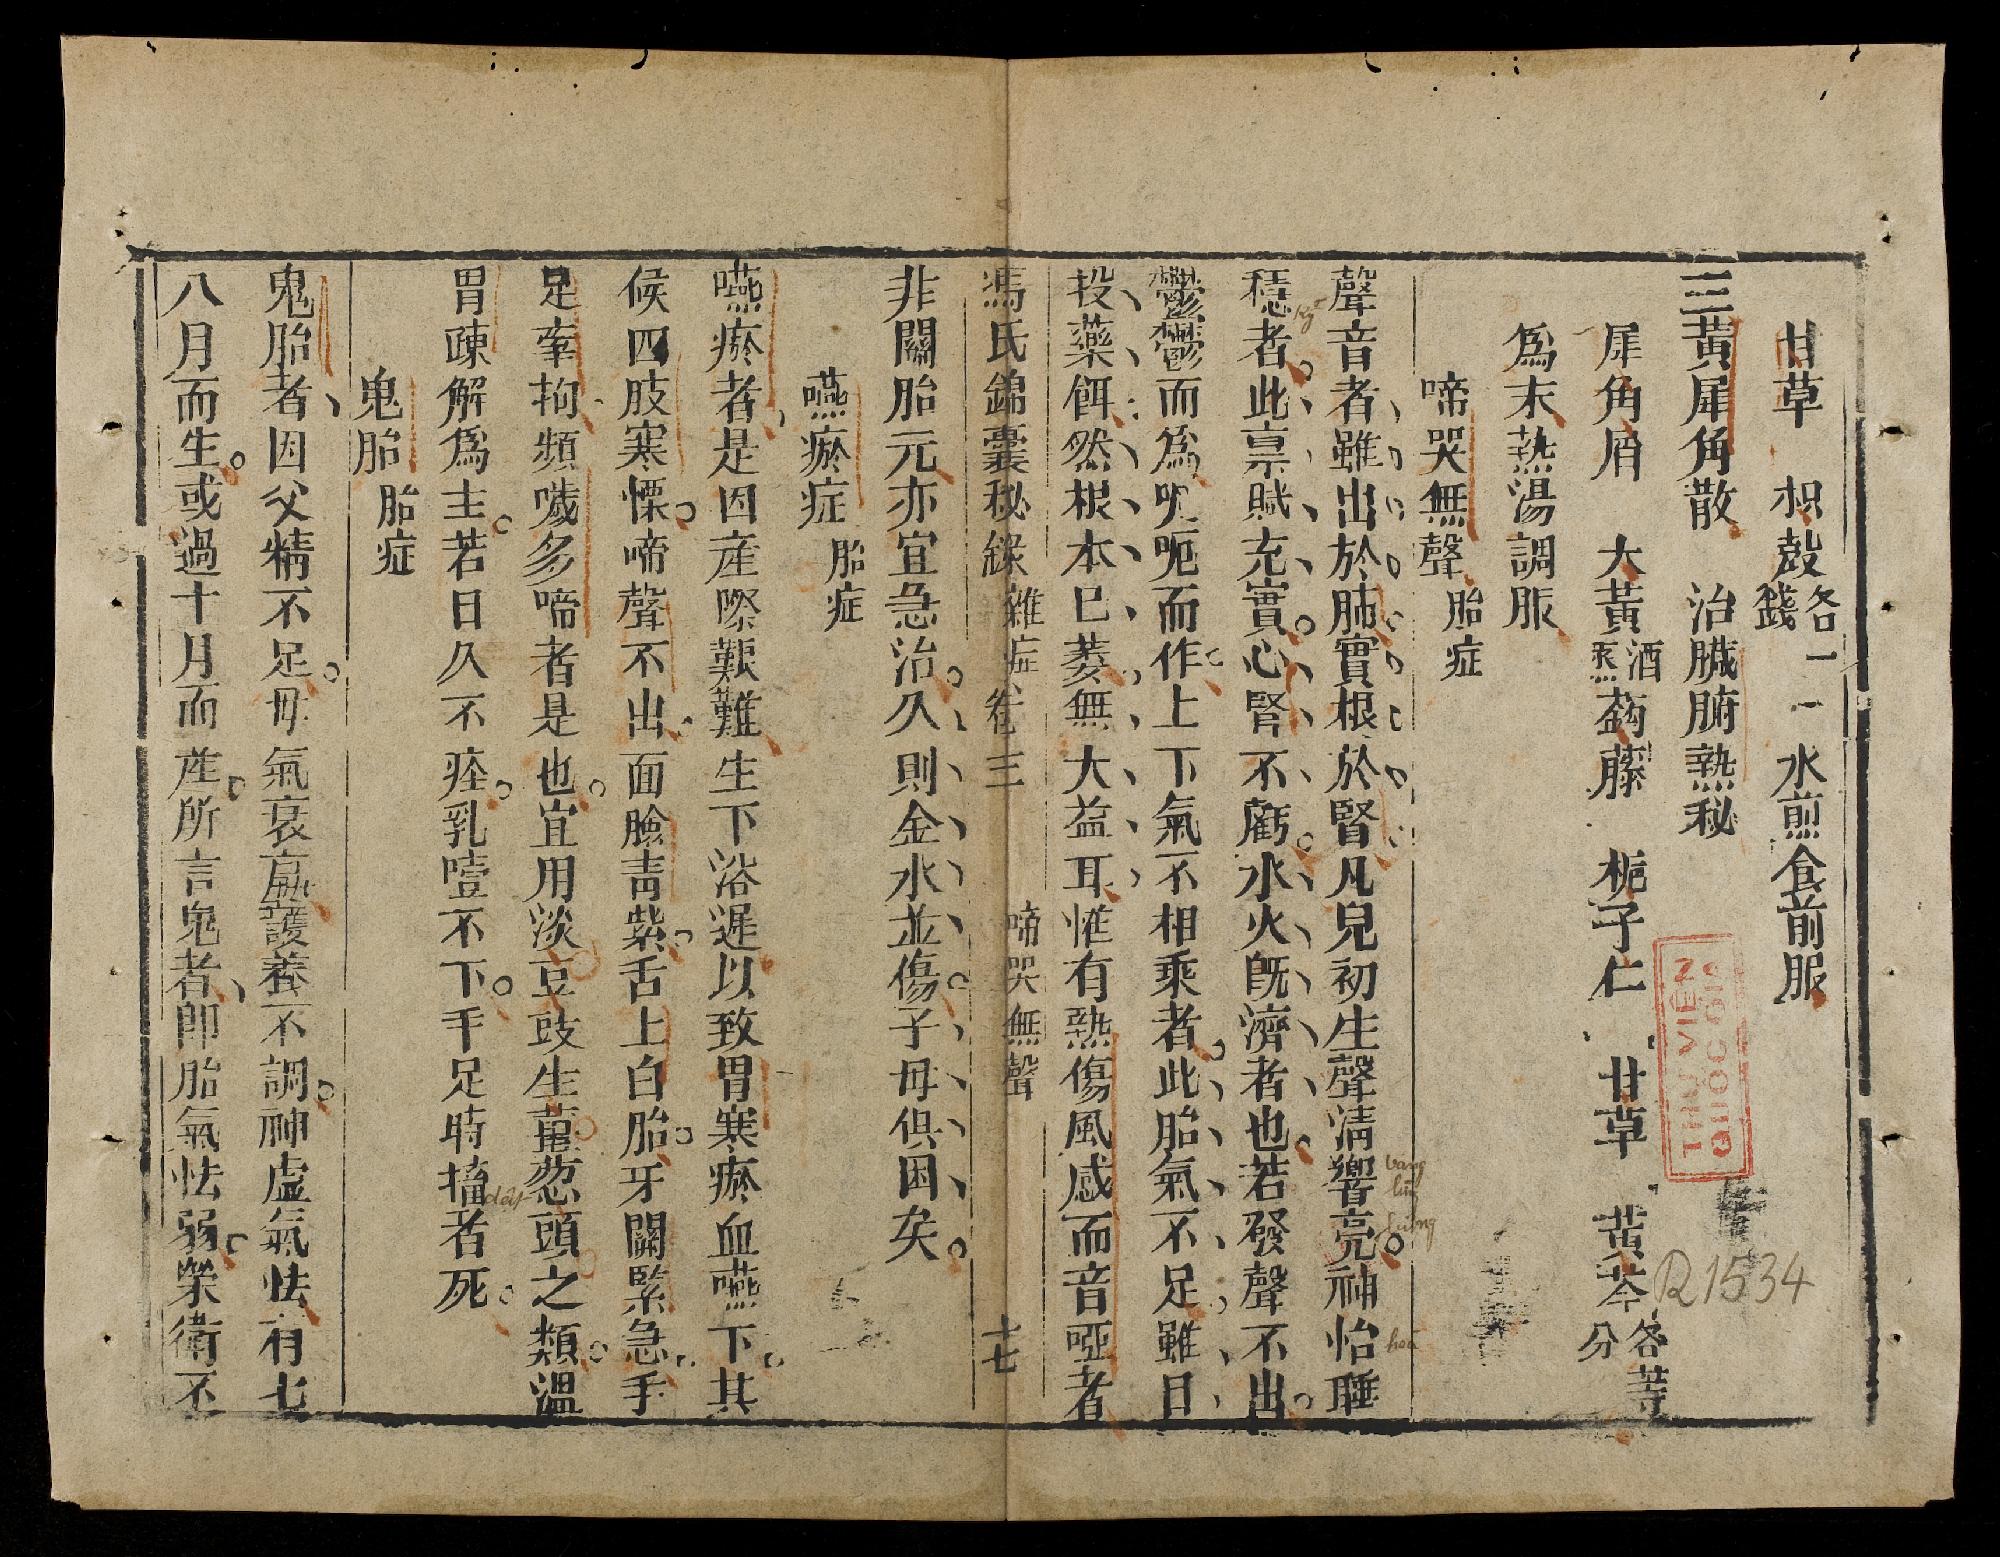 甘草　枳殼各一錢　水煎食前服
三黃犀角散　治臟腑熱秘
犀角屑　大黃酒蒸　鈎藤　梔子仁　甘草　黃芩各等分
爲末熱湯調服
啼哭無聲　胎症
聲音者雖出於肺實根於腎凡兒初生聲淸響亮神怡睡
穩者此稟賦充實心腎不虧水火旣濟者也若發聲不出
鬱鬱而爲呃呃而作上下氣不相乘者此胎氣不足雖日
投藥餌然根本已萎無大益耳惟有熱傷風感而音啞者
馮氏錦囊秘錄　雜症卷三　啼哭無聲　十七
非關胎元亦宜急治久則金水並傷子母俱困矣
嚥瘀症　胎症
嚥瘀者是因產際艱難生下浴遲以致胃寒瘀血嚥下其
候四肢寒慄啼聲不出面臉靑紫舌上白胎牙關緊急手
足牽拘頻噦多啼者是也宜用淡豆豉生薑葱頭之類溫
胃疎解爲主若日久不痊乳噎不下手足時搐者死
鬼胎　胎症
鬼胎者因父精不足母氣衰羸護養不調神虛氣怯有七
八月而生或過十月而產所言鬼者卽胎氣怯弱榮衛不
THƯ VIỆN
QUỐC GIA
R1534